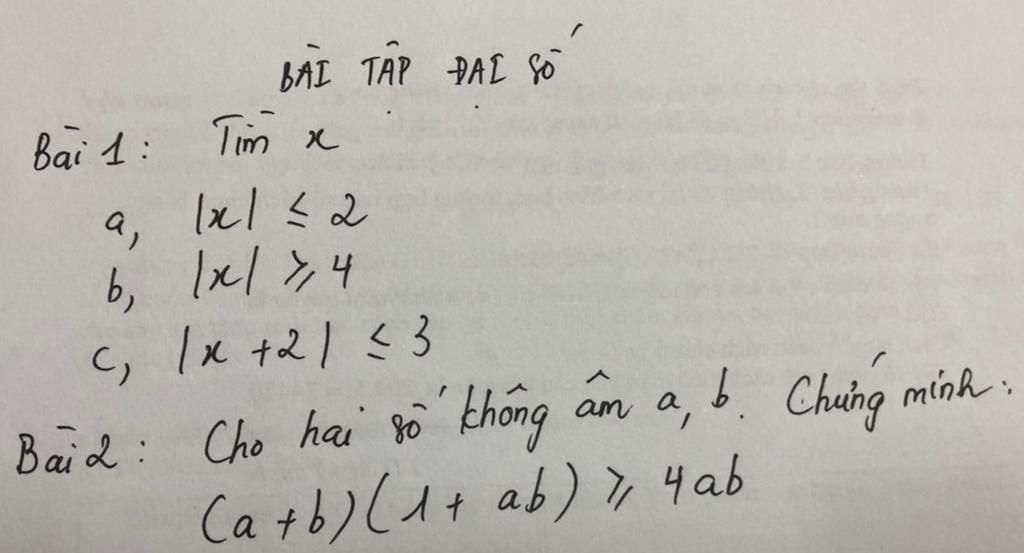 BÀI TẬP ĐẠI SỐ
Bài 1: Tìm x
a, |x| ≤ 2
b, |x| ≥ 4
c, |x + 2| ≤ 3
Bài 2: Cho hai số không âm a, b. Chứng minh:
(a + b)(1 + ab) ≥ 4ab